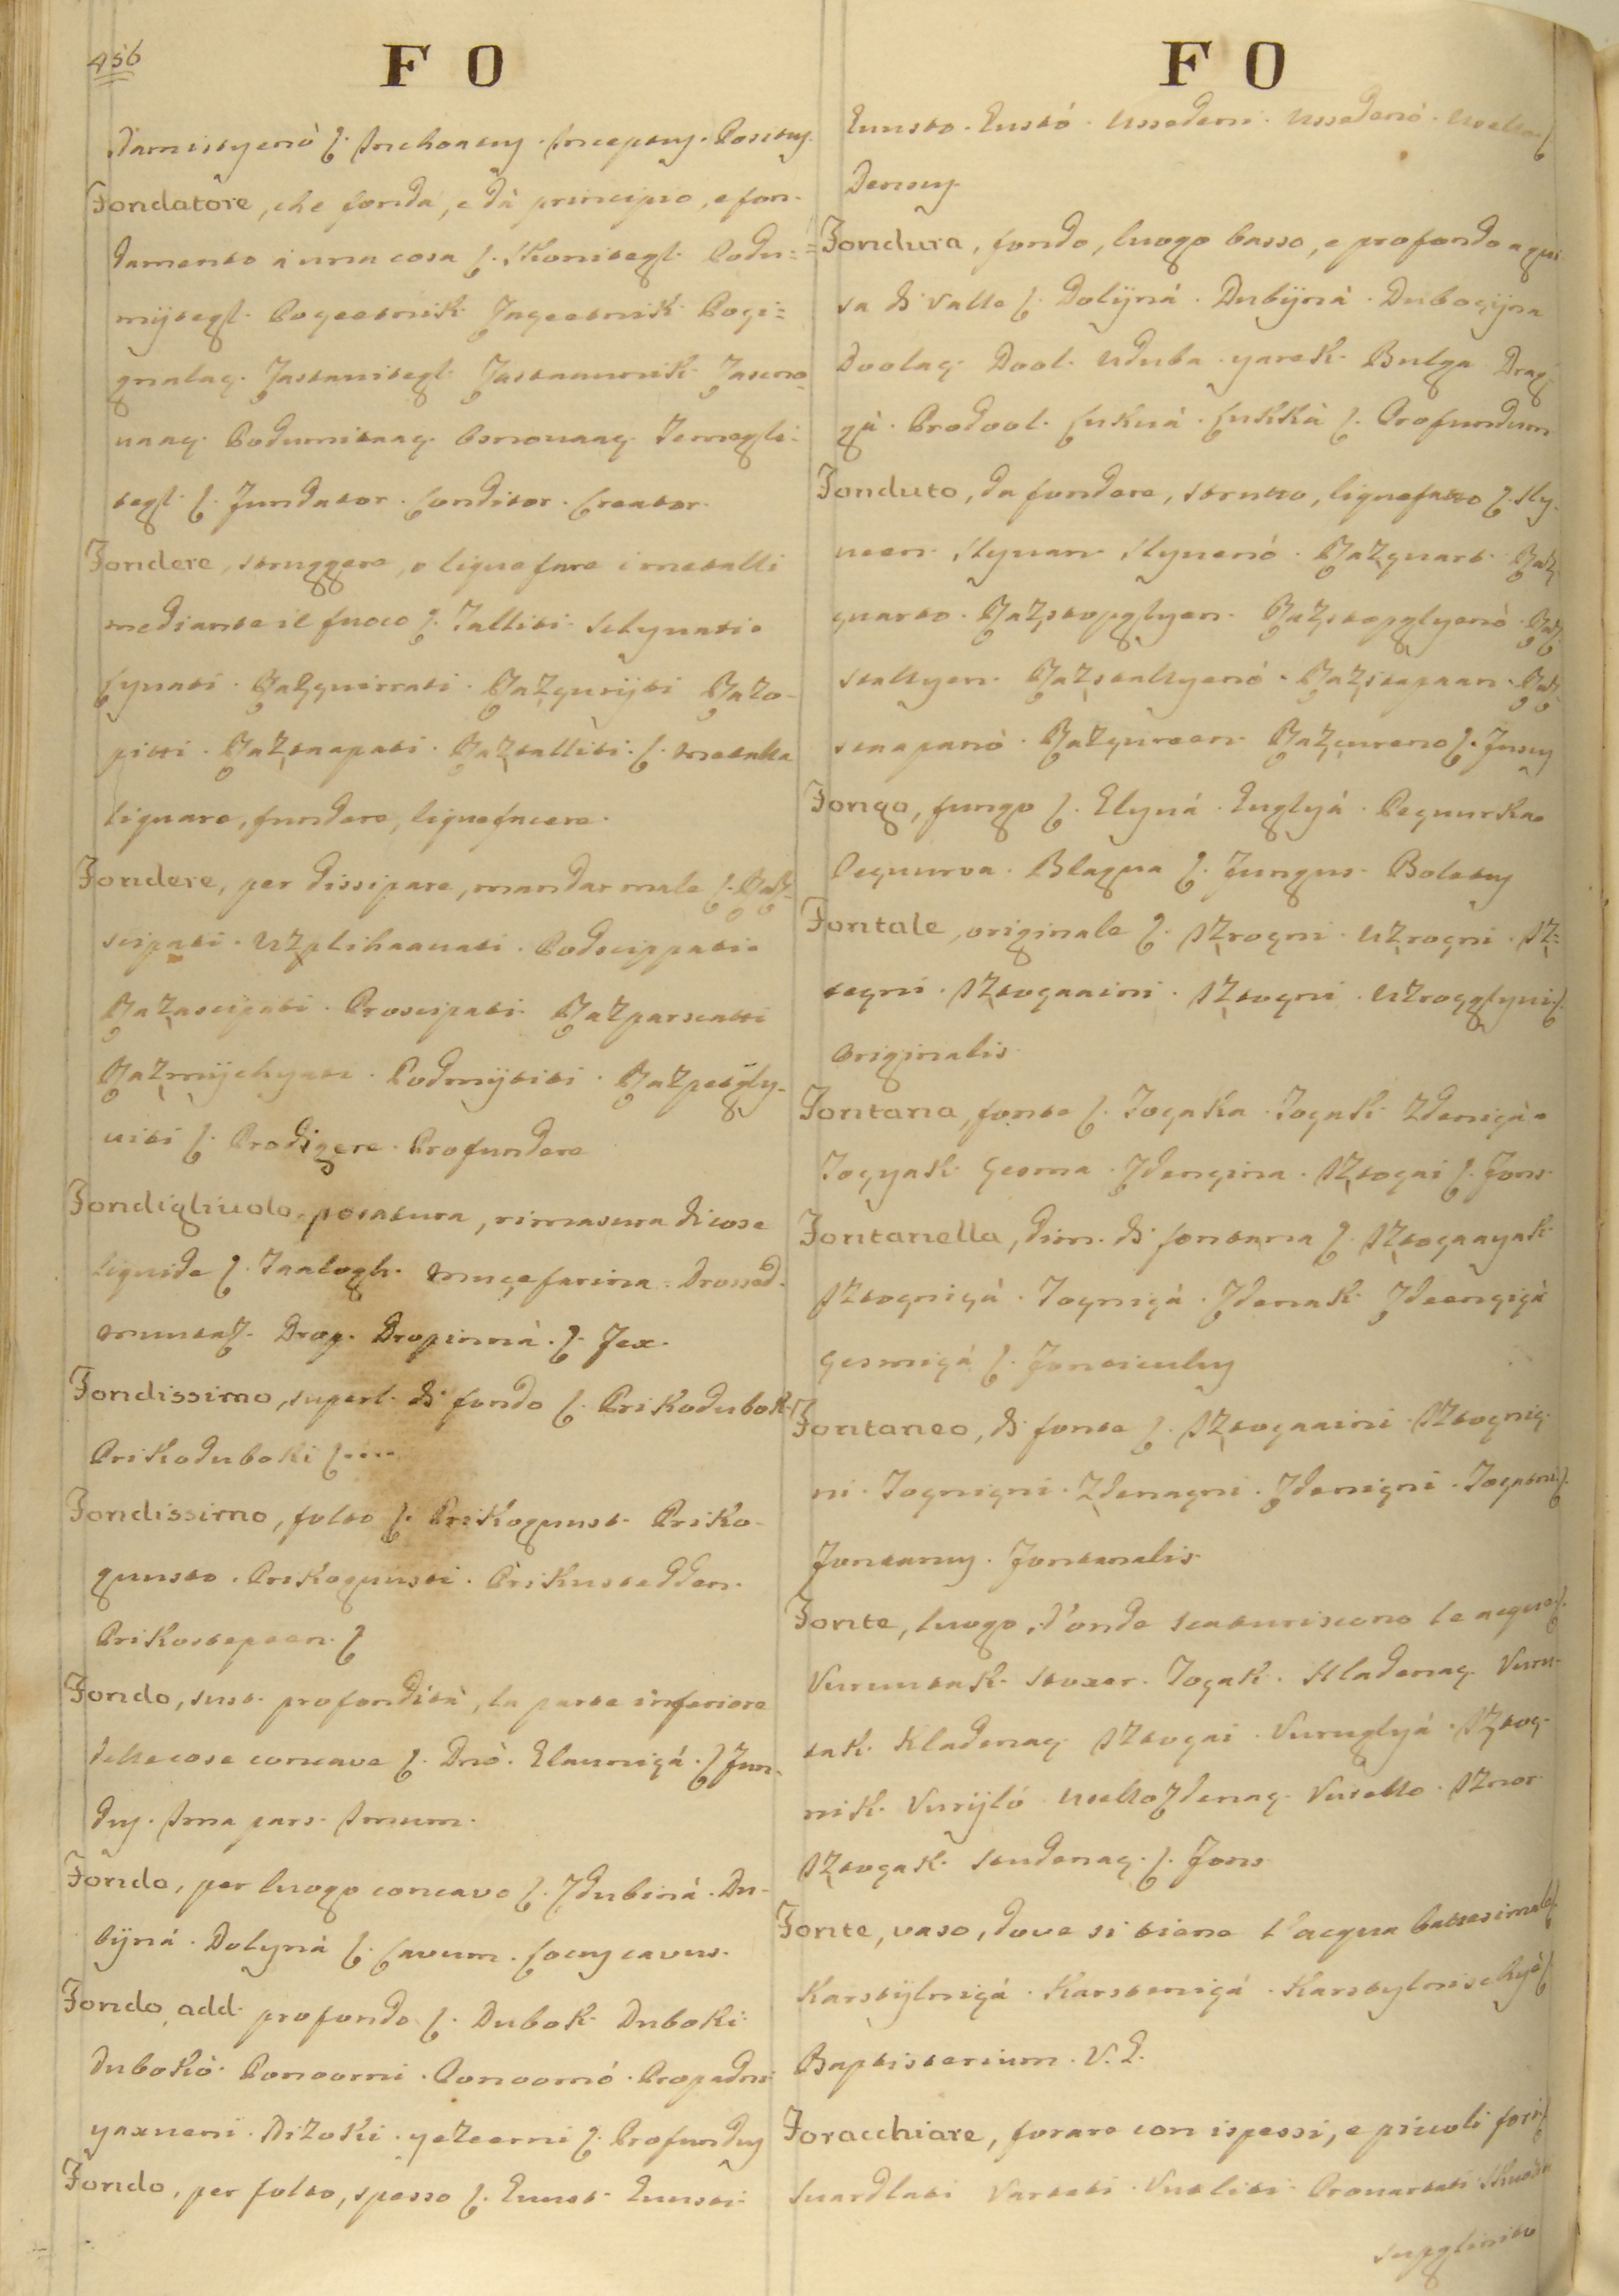 456
F O
Damistyenò ſ. Inchoatuſ. Inceptuſ. Posituſ.
Fondatore, che fonda, e dà principio, e fon-
damento à una cosa ſ. Skonitegl. Podu=
mijtegl. Poçeetnik. Zaçeetnik. Poçi=
gnalaç. Zastauitegl. Zastaaunik. Zasno-
uaaç. Podumitaaç. Osnouaaç. Temegli-
tegl. ſ. Fundator. Conditor. Creator.
Fondere, struggere, o liquefare i metalli
mediante il fuoco ſ. Talliti. Slyuati.
Lyuati. Raz̧uirrati. Raz̧urijti Razo-
pitti. Raz̧taapati. Raz̧talliti. ſ. metalla
liquare, fundere, liquefacere.
Fondere, per dissipare, mandar male ſ. Raz̧-
sipati. Uz̧plihaauati. Podscippati.
Raz̧ascipati. Proscipati. Razparscatti
Raz̧mijchyati. Podmijtiti. Razpetgly-
uiti ſ. Prodigere. Profundere
Fondigliuolo, posatura, rimasura di cose
liquide ſ. Taalogh. muçefarina. Drossed.
muutaſ. Drop. Dropinnà. ſ. Fex.
Fondissimo, superl. di fondo ſ. Prikodubok.
Prikoduboki ſ....
Fondissimo, folto ſ. Prikoguust. Priko-
guusto. Prikoguusti. Prikustedden.
Prikostepeen. ſ
Fondo, sust. profondità, la parte inferiore
delle cose concave ſ. Dnò. Elaunigá. ſ Fun-
duſ. Ima pars. Imum.
Fondo, per luogo concavo ſ. Zdubinà. Du-
bijná. Dolynà ſ. Cavum. Locuſ cavus.
Fondo, add. profondo ſ. Dubok. Duboki.
Dubokò. Ponoorni. Ponoornó. Propadni
yaxneni. Dizoki. yezeerni ſ. Profunduſ
Fondo, per folto, spesso ſ. Guust. Guusti.
F O
Guusto. Gustó. Ussedeni. Ussedenò. Uvello ſ
Densuſ.
Fondura, fondo, luogo basso, e profondo a gui-
sa di valle ſ. Dolijná. Dubijná. Duboçijna
Doolaç. Dool. Uduba. yarek. Bulga. Drag-
gà. Prodool. Lukuá. Lukkà ſ. Profundum
Fonduto, da fondere, strutto, liquefatto ſ. Sly-
ueen. Slyuan. Slyuenó. Raz̧uart. Raz̧-
uarto. Raz̧topglyen. Raz̧topglyenò. Raz̧-
stallyen. Raz̧tallyenó. Raz̧tapaan. Raz̧-
staapanò. Raz̧ureen. Raz̧urenoſ. Fusuſ
Fongo, fungo ſ. Glyuá. Guglyá. Peçuurka.
Peçuurva. Blagua ſ. Fungus. Boletuſ
Fontale, originale ſ. Iz̧roçni. Uz̧roçni. Iz̧-
toçni. Iz̧toçaaini. Iz̧toçni. Uzroçglyuiſ.
Originalis.
Fontana, fonte ſ. Toçaka. Toçak. Zdenigà.
Toçyak. Çesma. Zdençina. Iz̧toçai ſ. Fons.
Fontanella, dim. di fontana ſ. Iz̧toçaayak
Iztoçnigà. Toçnigá. Zdenak. Zdeençigà
Çesmigá ſ. Fonticuluſ
Fontaneo, di fonte ſ. Iz̧toçaaini. Iztoçnig-
ni. Toçnigni. Zdenaçni. Zdenigni. Toçatni ſ.
Fontanuſ. Fontanalis.
Fonte, luogo, d'onde scaturiscono le acque ſ.
Vuruutak. Stoxer. Toçak. Hladenaç. Vuru-
tak. Kladenaç. Iztoçai. Vuruglyá. Iz̧toç-
nik. Vurijló. Uvello Zdenaç. Vuuello. Izuor.
Iz̧toçak. Studenaç. ſ. Fons.
Fonte, vaso, dove si tiene l'acqua battesimale ſ
Karstijlnigá. Karstenigá. Karstylnischyè ſ
Baptisterium. V. L.
Foracchiare, forare con ispessi, e piccoli fori ſ
Suardlati. Vartati. Vutliti. Prouartati.
supgliniti